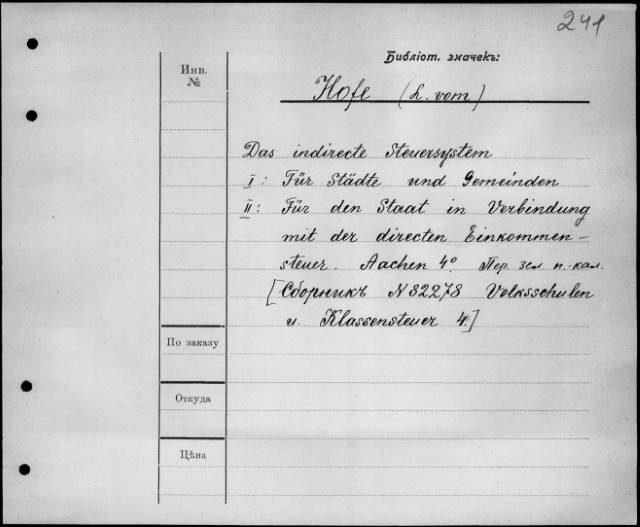 241
Библіот. значекъ:
Инв.
№
Hofe (L. vom)
Das indirecte Steuersystem
I: Für Städte und Gemeinden
II: Für den Staat in Verbindung
mit der directen Einkommen-
steuer. Aachen 4° Пер. зел. п.-кал.
[Сборникъ N 82278 Volksschulen
u. Klassensteuer 4.]
По заказу
Откуда
Цѣна